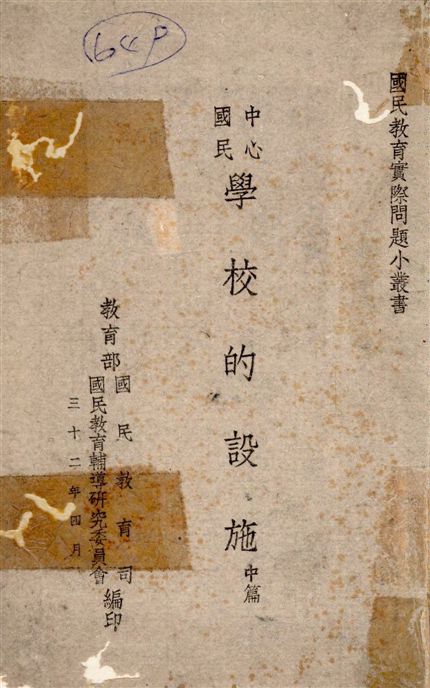 國民教育實際問題小叢書
中心
國民
學校的設施中篇
教育部
國民教育司
國民教育輔導研究委員會
編印
三十二年四月
164P